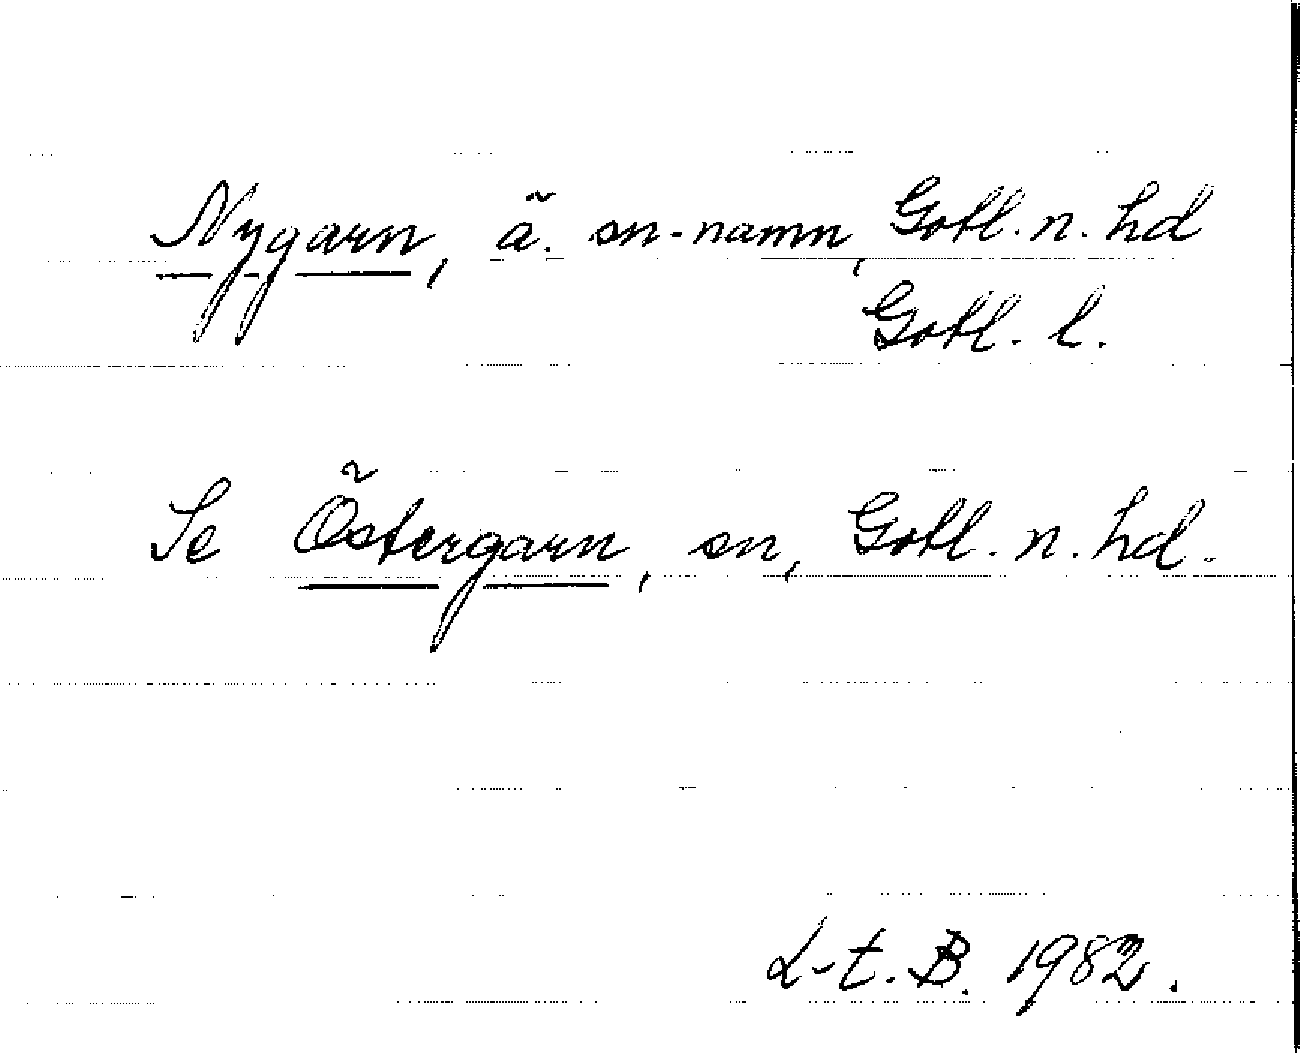 Nygarn, ä. sn-namn, Gotl. n. hd
Gotl. l.
Se Östergarn, sn, Gotl. n. hd.
L-t. B. 1982.